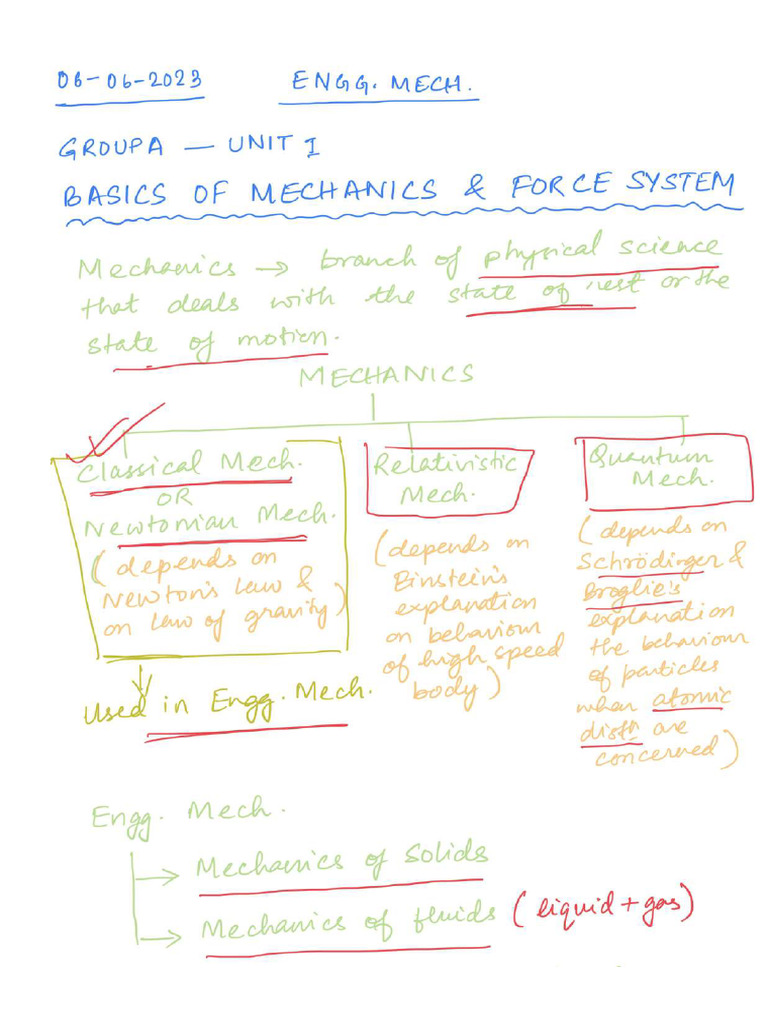 06-06-2023 ENGG. MECH.
GROUP A — UNIT I
BASICS OF MECHANICS & FORCE SYSTEM
Mechanics → branch of physical science
that deals with the state of rest or the
state of motion.
MECHANICS
Classical Mech.
OR
Newtonian Mech.
(depends on
Newton's law &
on law of gravity)
Used in Engg. Mech.
Relativistic
Mech.
(depends on
Einstein's
explanation
on behaviour
of high speed
body)
Quantum
Mech.
(depends on
Schrödinger &
Broglie's
explanation
the behaviour
of particles
when atomic
distn are
concerned)
Engg. Mech.
→ Mechanics of solids
→ Mechanics of fluids (liquid + gas)